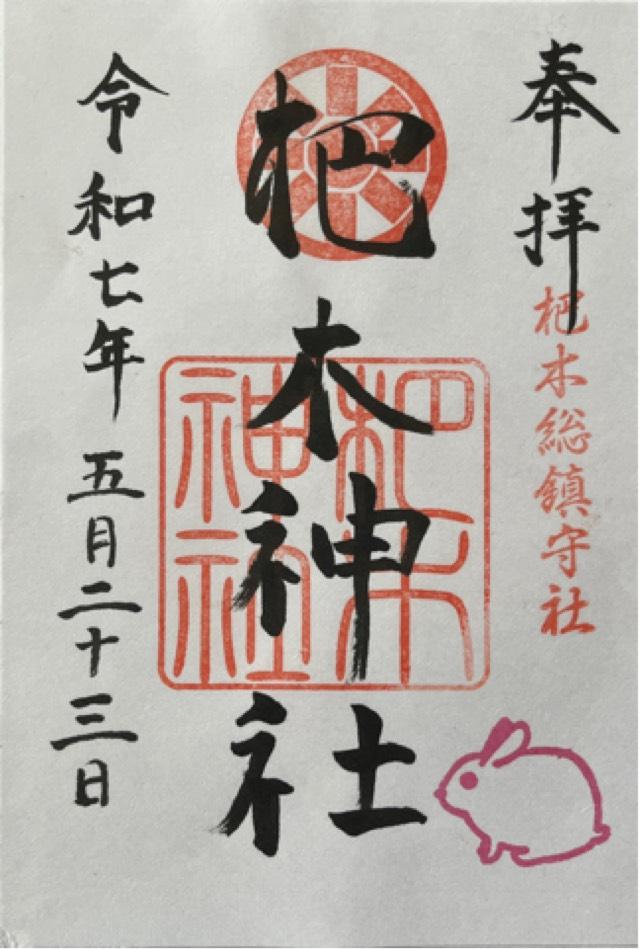 奉拝
杷木総鎮守社
杷木神社
杷木神社
令和七年五月二十三日